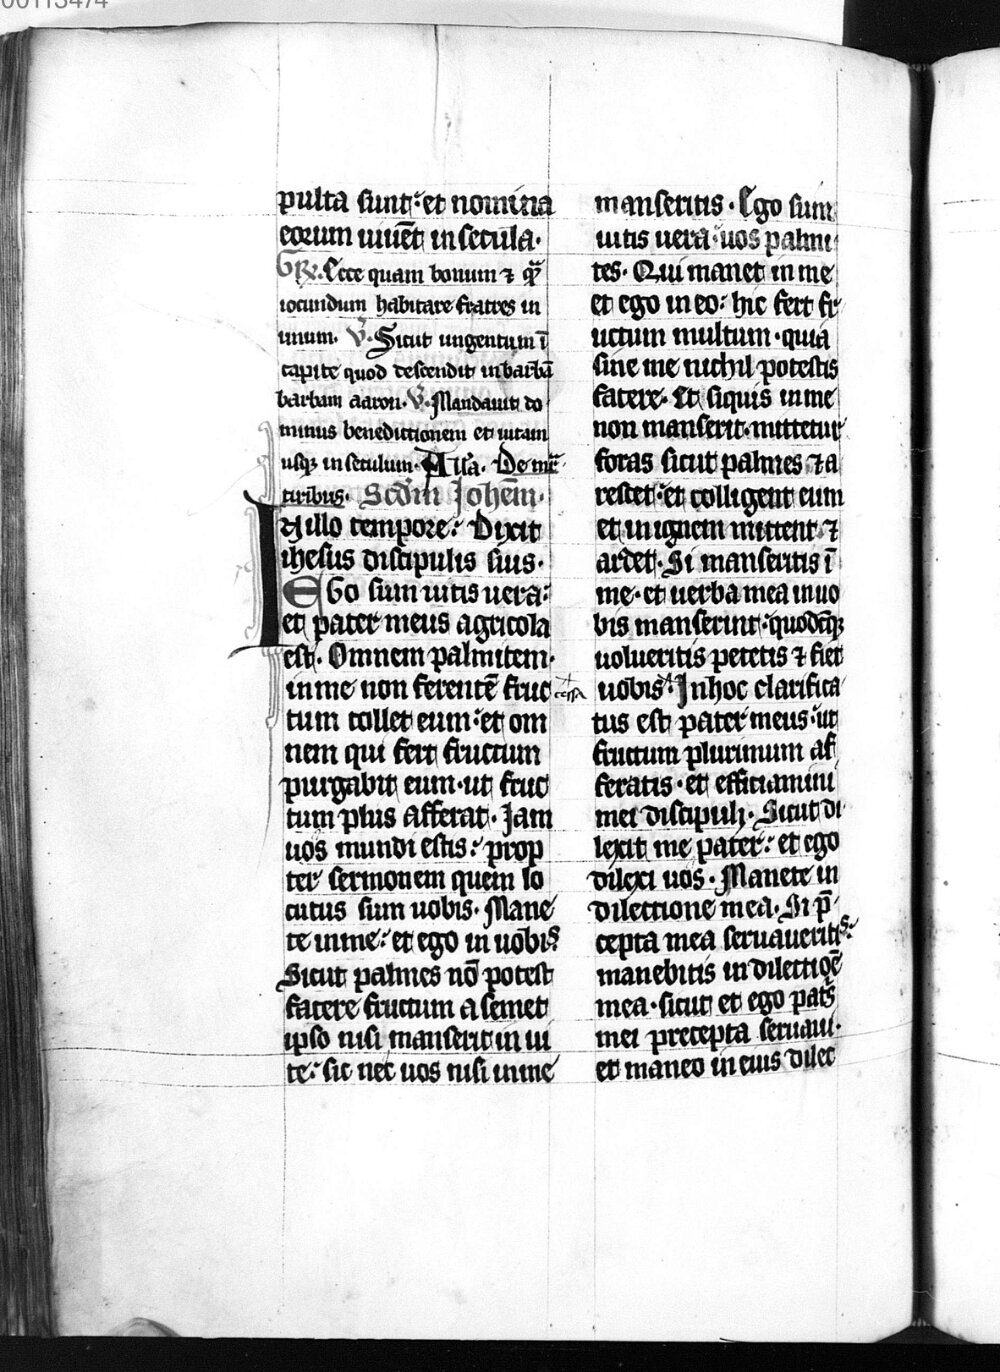 00113474
pulta sunt: et nomina
eorum uiue͂t in secula·
GR̃. Ecce quam bonum ⁊ qͣ̃
iocundum habitare fratres in
unum. V̾· Sicut ungentum ĩ
capite quod descendit in barbã
barbam aaron· V̾· Mandauit do
minus benedictionem et uitam
usqꝫ in seculum· Alla. De mr̃
tiribus· Scdm̃ Johem̃·
IN illo tempore: Dixit
ihesus discipulis suis·
EGo sum uitis uera:
et pater meus agricola
est. Omnem palmitem·
in me non ferentẽ fruc
tum tollet eum: et om
nem qui fert fructum
purgabit eum· ut fruc
tum plus afferat· Jam
uos mundi estis: prop
ter sermonem quem lo
cutus sum uobis· Mane
te in me: et ego in uobis
Sicut palmes nõ potest
facere fructum a semet
ipso nisi manserit in ui
te: sic nec uos nisi in me
manseritis· Ego sum
uitis uera: uos palmi
tes· Qui manet in me
et ego in eo: hic fert fr
uctum multum· quia
sine me nichil potestis
facere· Et siquis in me
non manserit· mittetur
foras sicut palmes ⁊ a
rescet: et colligent eum
et in ignem mittent ⁊
ardet· Si manseritis ĩ
me· et uerba mea in uo
bis manserint: quodcũqꝫ
uolueritis petetis ⁊ fiet
uobis· In hoc clarifica
tus est pater meus· ut
fructum plurimum af
feratis· et efficiamini
mei discipuli· Sicut di
lexit me pater: et ego
dilexi uos· Manete in
dilectione mea· Si p̃
cepta mea seruaueritis:
manebitis in dilectiõe
mea· sicut et ego patˢ
mei precepta seruaui·
et maneo in eius dilec